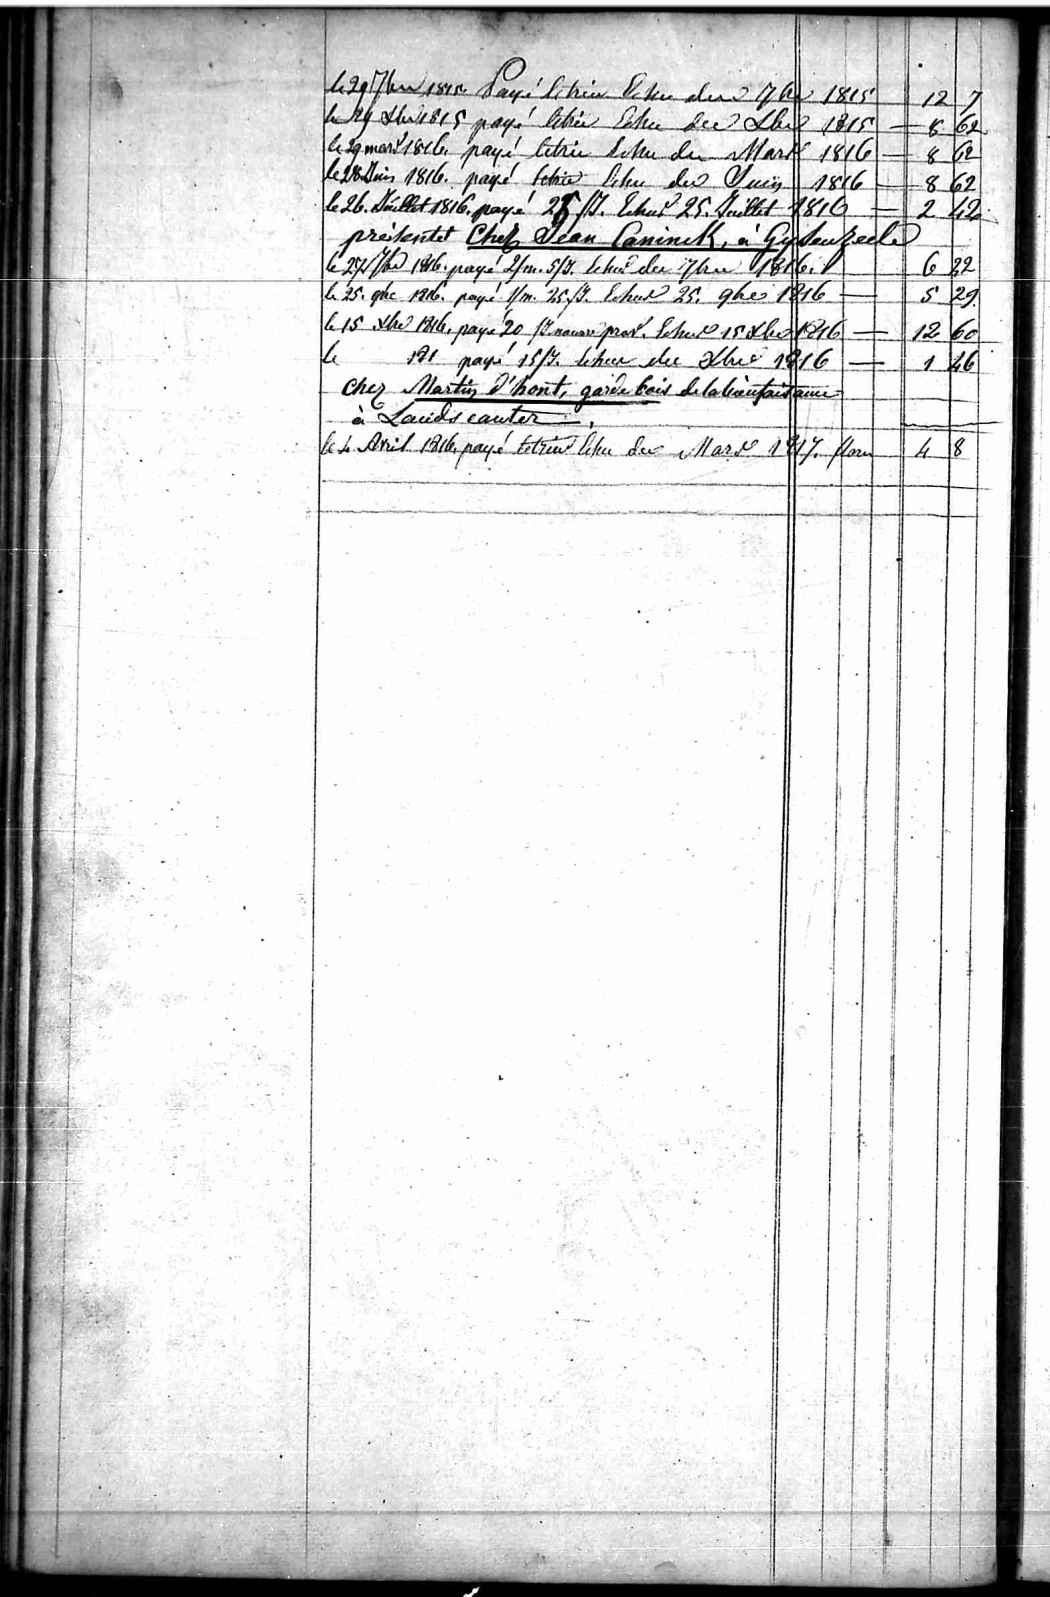 le 29 7bre 1815. Payé letrim Echu du 7bre 1815 12 7
le 29 Xbre 1815 payé letrim Echu du Xbre 1815 — 8 62
le 29 mars 1816. payé letrim Echu du Mars 1816 — 8 62
le 28 Juin 1816. payé letrim Echu du Juin 1816 — 8 62
le 26. Juillet 1816. payé 25/J. Echus 25. Juillet 1816 — 2 42
présentet Chez Jean Caninck, à Gysenzeele
le 27 7bre 1816. payé 2/m. 5/J. Echus du 7bre 1816. 6 22
le 25. 9bre 1816. payé 1/m. 25/J. Echus 25. 9bre 1816 — 5 29
le 15 Xbre 1816. payé 20 /J. Echus 15 Xbre 1816 — 12 60
le 181 payé 15/J. Echus du Xbre 1816 — 1 46
chez Martin d'hont, garde bois de la bienfaisance
à Landscauter.
le 4 Avril 1816. payé letrim Echu du Mars 1817. 4 8